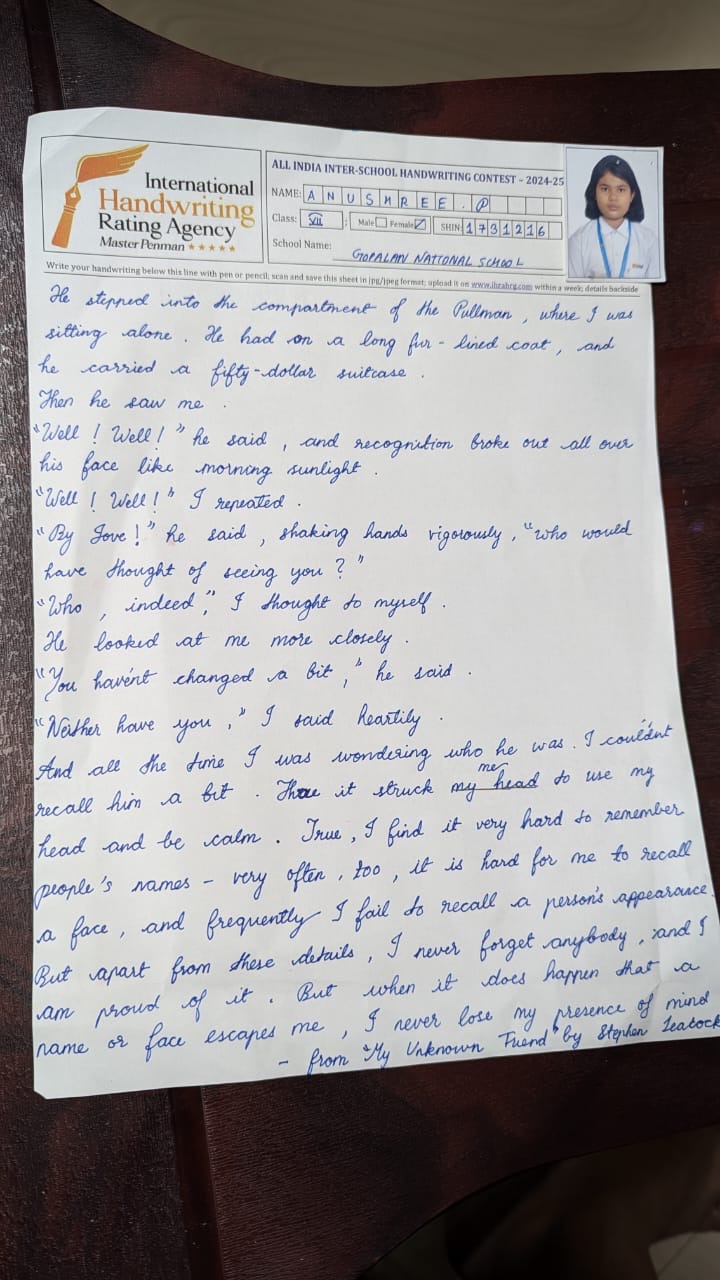 International
Handwriting
Rating Agency
Master Penman ★★★★★
ALL INDIA INTER-SCHOOL HANDWRITING CONTEST - 2024-25
NAME: ANUSHREE . P
Class: VII : Male Female ✓ SHIN: 1731216
School Name: GOPALAN NATIONAL SCHOOL
Write your handwriting below this line with pen or pencil; scan and save this sheet in jpg/jpeg format; upload it on www.ihrahrg.com within a week; details backside
He stepped into the compartment of the Pullman , where I was
sitting alone . He had on a long fur - lined coat , and
he carried a fifty-dollar suitcase .
Then he saw me .
"Well ! Well ! " he said , and recognition broke out all over
his face like morning sunlight .
"Well ! Well ! " I repeated .
"By Jove ! " he said , shaking hands vigorously , "who would
have thought of seeing you ? "
"Who , indeed," I thought to myself .
He looked at me more closely .
"You haven't changed a bit ," he said .
"Neither have you ," I said heartily .
And all the time I was wondering who he was . I couldn't
recall him a bit . it struck my head me to use my
head and be calm . True , I find it very hard to remember
people's names – very often , too , it is hard for me to recall
a face , and frequently I fail to recall a person's appearance.
But apart from these details , I never forget anybody , and I
am proud of it . But when it does happen that a
name or face escapes me , I never lose my presence of mind
– from "My Unknown Friend" by Stephen Leacock